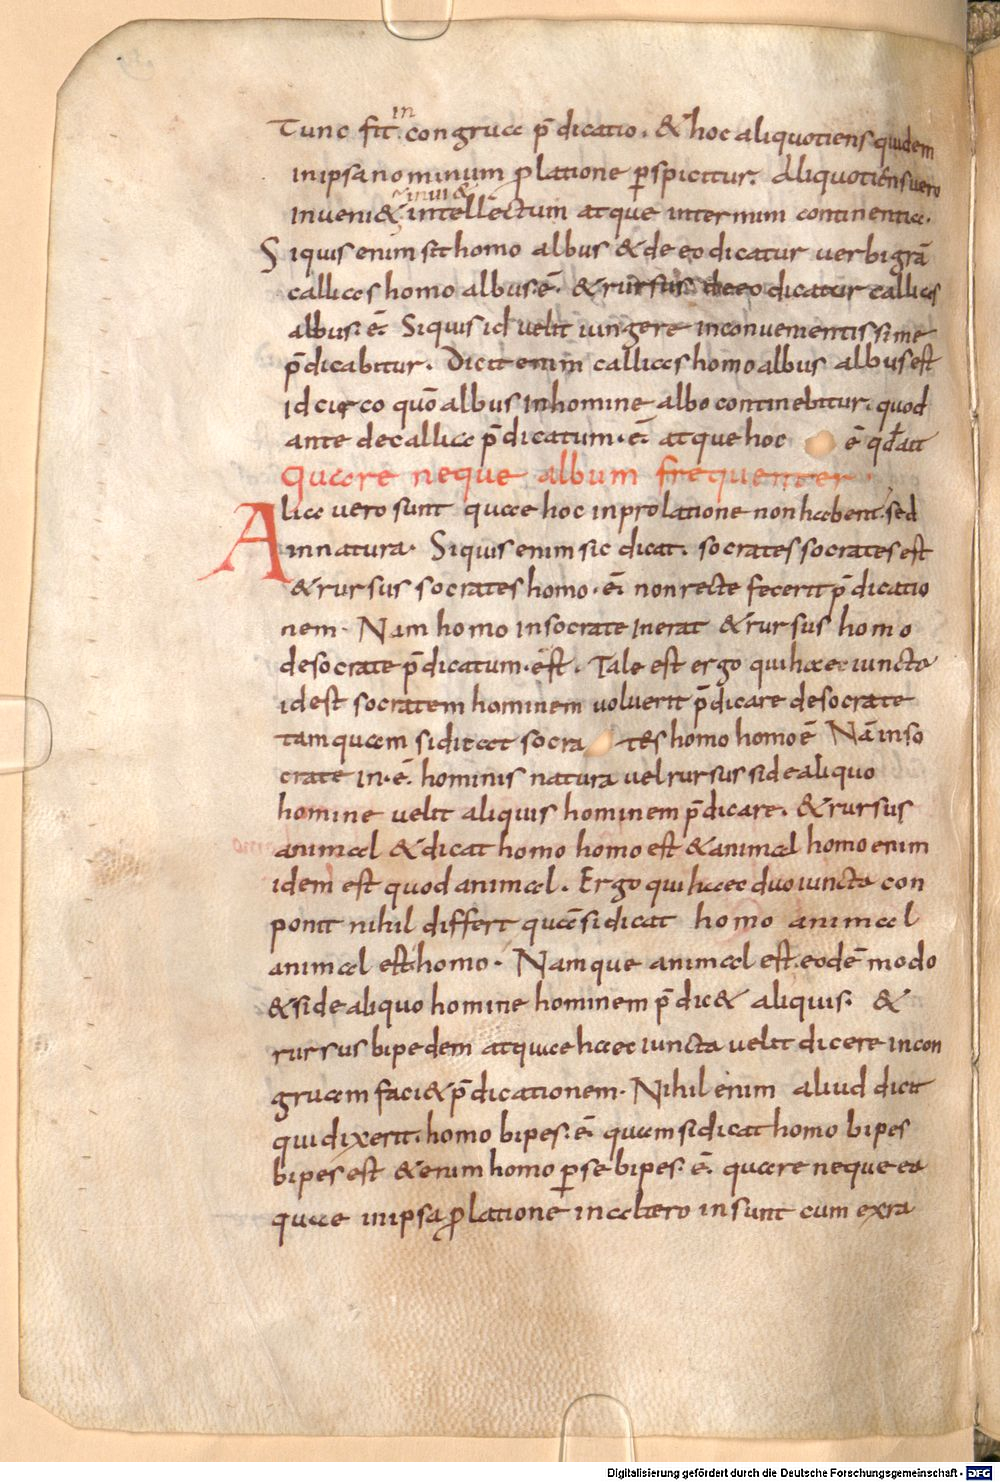 Tunc fit. congrua p̄dicatio. & hoc aliquotiens quidem
in
inipsa nominum ꝓlatione ꝑspicitur. Aliquotiens uero
inueni& intellectum atque internim continentia.
Siquis enim sit homo albus & de eo dicatur uerbi grā
callias homo albus. ē. & rursus deeo dicatur callias
albus. ē. Siquis id uelit iungere inconuenientissime
p̄dicabitur. Dicit enim callias homo albus albus est
idcirco quō albus inhomine albo continebitur. quod
ante decallia p̄dicatum. ē. atque hoc ē qđ ait
Quare neque album frequenter.
Alia uero sunt quae hoc inprolatione non habent. sed
innatura. Siquis enim sic dicat. socrates socrates est
& rursus socrates homo. ē. non recte fecerit p̄dicatio
nem. Nam homo insocrate inerat & rursus homo
desocrate p̄dicatum. est. Tale est ergo qui haec iuncta
idest socratem hominem uoluerit p̄dicare desocrate
tamquam si dicat socra tes homo homo ē Nā inso
crate in. ē. hominis natura uel rursus si de aliquo
homine uelit aliquis hominem p̄dicare. & rursus
animal & dicat homo homo est & animal homo enim
idem est quod animal. Ergo qui haec duo iuncta con
ponit nihil differt quā si dicat homo animal
animal est homo. Namque animal est. eodē modo
& si de aliquo homine hominem p̄dic& aliquis. &
rursus bipedem atquae haec iuncta uelit dicere incon
gruam faci& p̄dicationem. Nihil enim aliud dicit
qui dixerit. homo bipes. ē. quam si dicat homo bipes
bipes est & enim homo ꝑ se bipes. ē. quare neque ea
quae inipsa ꝓlatione inaltero insunt cum exra
Digitalisierung gefördert durch die Deutsche Forschungsgemeinschaft - DFG